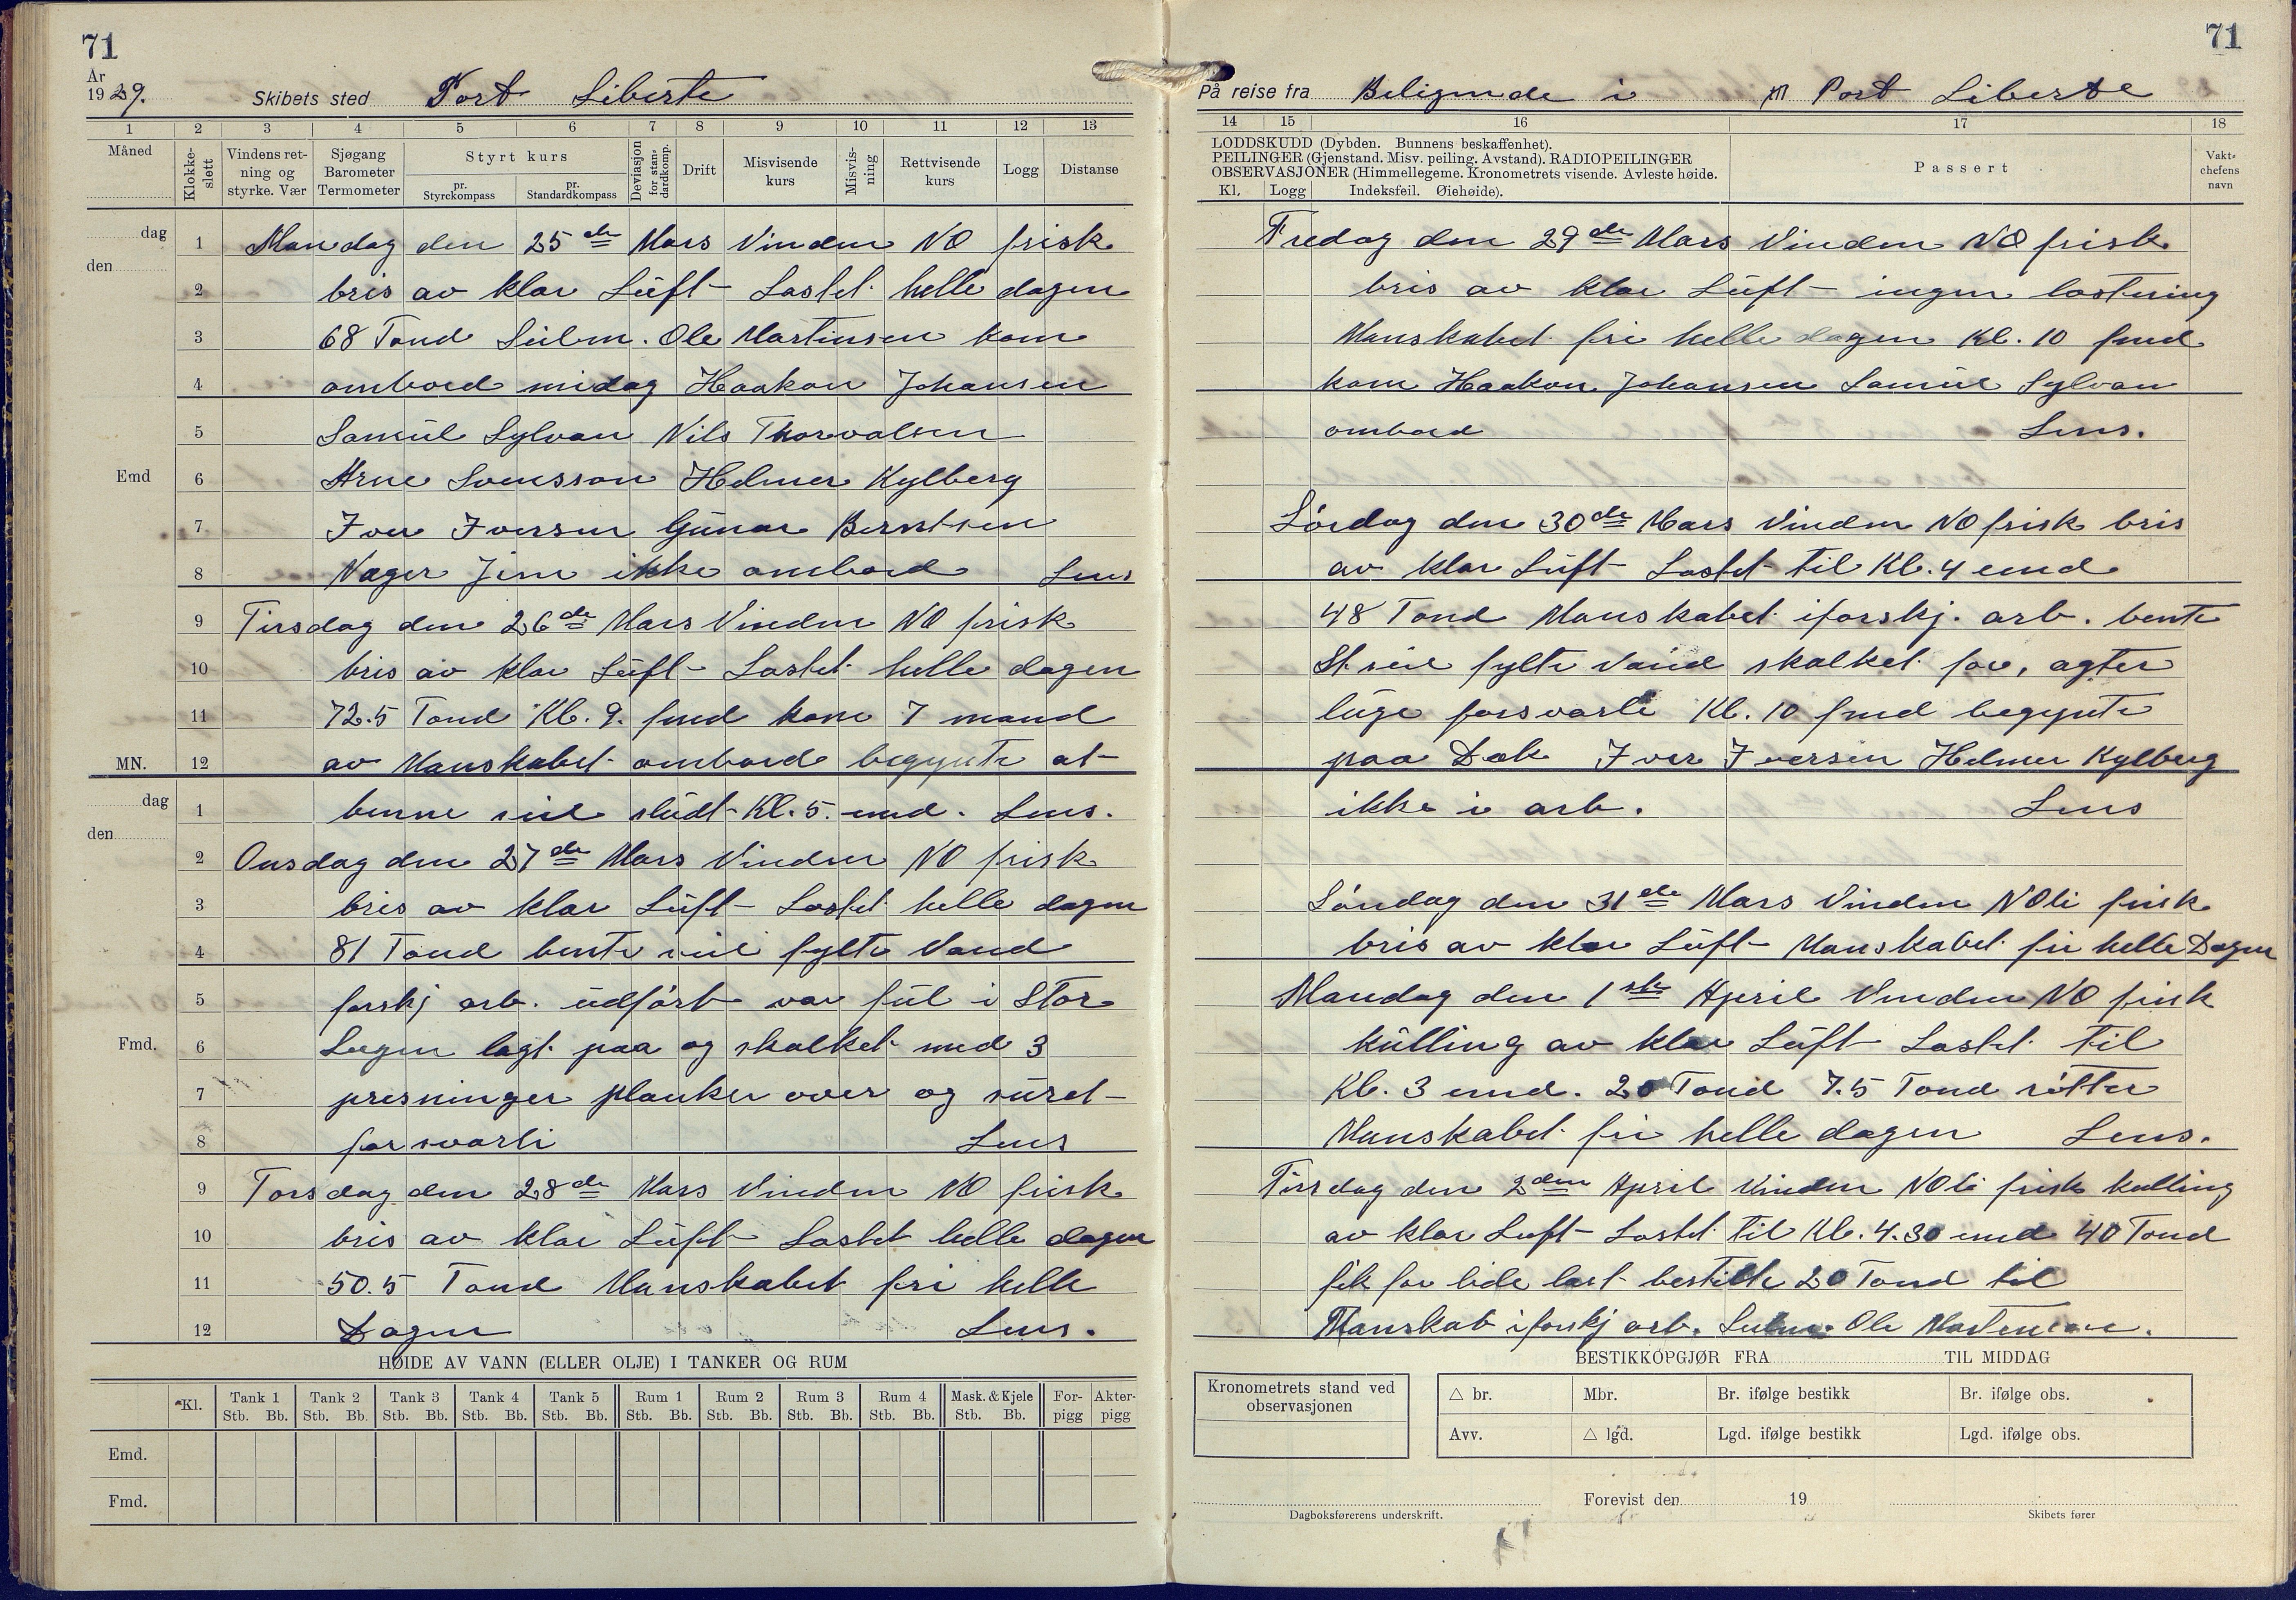 71
År
1929.
Skibets sted Port Liberte
1 2 3 4 5 6 7 8 9 10 11 12 13
Måned
Klokke-slett
Vindens ret-
ning og
styrke. Vær
Sjøgang
Barometer
Termometer
Styrt kurs
pr.
Styrekompass
pr.
Standardkompass
Deviasjon for stan-dardkomp.
Drift
Misvisende
kurs
Misvis-ning
Rettvisende
kurs
Logg
Distanse
dag
den
1 Mandag den 25de Mars Vinden NO frisk
2 bris av klar Lüft Lastet helle dagen
3 68 Tond Ole Martinsen kom
4 ombord midag Haakon Johansen
5 Samüel Sylvan Nils Thorvalsen
Emd 6 Arne Svensson Helmer Kylberg
7 Iver Iversen Günar Berntsen
8 Neger Jim ikke ombord Lens
9 Tirsdag den 26de Mars Vinden NO frisk
10 bris av klar Lüft Lastet helle dagen
11 72.5 Tond Kl. 9. fmd kom 7 mand
MN. 12 av Manskabet ombord begynte at
dag
den
1 benne seil slüdt Kl. 5. emd. Lens.
2 Onsdag den 27de Mars Vinden NO frisk
3 bris av klar Lüft Lastet helle dagen
4 81 Tond bente seil fylte Vand
5 forskj arb. üdført var fül i Stor
Fmd. 6 Lugen lagt paa og skalket med 3
7 presninger planker over og süret
8 forsvarli Lens
9 Torsdag den 28de Mars Vinden NO frisk
10 bris av klar Lüft Lastet helle dagen
11 50.5 Tond Manskabet fri helle
12 Dagen Lens.
HØIDE AV VANN (ELLER OLJE) I TANKER OG RUM
Kl. Tank 1 Tank 2 Tank 3 Tank 4 Tank 5 Rum 1 Rum 2 Rum 3 Rum 4 Mask. & Kjele For- Akter-
Stb. Bb. Stb. Bb. Stb. Bb. Stb. Bb. Stb. Bb. Stb. Bb. Stb. Bb. Stb. Bb. Stb. Bb. Stb. Bb. pigg pigg
Emd.
Fmd.
71
På reise fra Beligende i til Port Liberte
14 15 16 17 18
LODDSKUDD (Dybden. Bunnens beskaffenhet).
PEILINGER (Gjenstand. Misv. peiling. Avstand). RADIOPEILINGER
OBSERVASJONER (Himmellegeme. Kronometrets visende. Avleste høide.
Kl. Logg Indeksfeil. Øiehøide).
Passert
Vakt-
chefens
navn
Fredag den 29de Mars Vinden NO frisk
bris av klar Lüft ingen lastning
Manskabet fri helle dagen Kl. 10 fmd
kom Haakon Johansen Samüel Sylvan
ombord Lens.
Lørdag den 30de Mars Vinden NO frisk bris
av klar Lüft Lastet til Kl. 4 emd
48 Tond Manskabet iforskj. arb. bente
St. seil fylte Vand skalket for, agter
lüge forsvarli Kl. 10 fmd begynte
paa Dek Iver Iversen Helmer Kylberg
ikke i arb. Lens
Søndag den 31de Mars Vinden NOli frisk
bris av klar Lüft Manskabet fri helle Dagen
Mandag den 1ste April Vinden NO frisk
külling av klar Lüft Lastet til
Kl. 3 emd. 20 Tond 7.5 Tond røtter
Manskabet fri helle dagen Lens.
Tirsdag den 2den April Vinden NOli frisk kulling
av klar Luft Lastet til Kl. 4.30 emd 40 Tond
fik for lide last bestilte 20 Tond til
Manskab iforskj arb. Ole Martensen.
BESTIKKOPGJØR FRA TIL MIDDAG
Kronometrets stand ved
observasjonen
△ br. Mbr. Br. ifølge bestikk Br. ifølge obs.
Avv. △ lgd. Lgd. ifølge bestikk Lgd. ifølge obs.
Forevist den 19
Dagboksførerens underskrift. Skibets fører